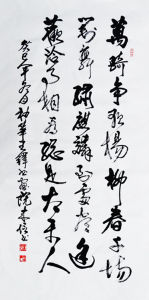 萬騎争歌楊柳春千場
對舞繡麒麟到處盡逢
歡洽事相看總是太平人
癸巳年冬月